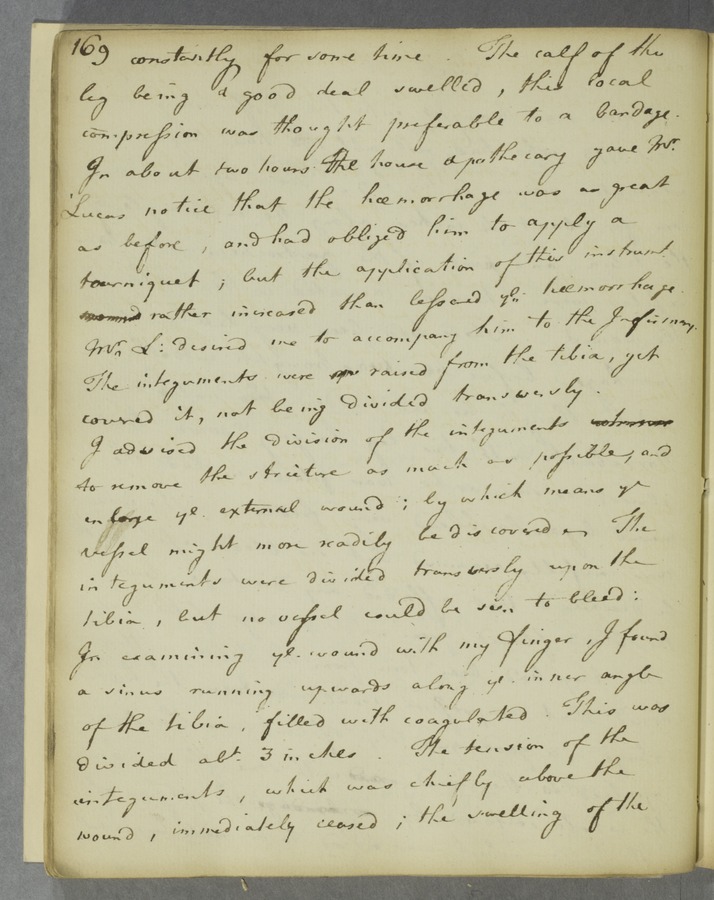 169 constantly for some time . The calf of the
leg being a good deal swelled , this local
compression was thought preferable to a bandage.
In about two hours The house apothecary gave Mr.
Lucas notice that the hœmorrhage was as great
as before , and had obliged him to apply a
tourniquet ; but the application of this instrumt.
rather increased than lessened ye. hœmorrhage.
Mr. L: desired me to accompany him to the Infirmary.
The integuments were raised from the tibia, yet
covered it, not being divided transversly.
I advised the division of the integuments
to remove the stricture as much as possible, and
enlarge ye. external wound ; by which means ye
vessel might more readily be discovered. The
integuments were divided transversly upon the
tibia , but no vessel could be seen to bleed :
In examining ye. wound with my finger, I found
a sinus running upwards along ye. inner angle
of the tibia , filled with coagulated . This was
divided abt. 3 inches . The tension of the
integuments , which was chiefly above the
wound , immediately ceased ; the swelling of the